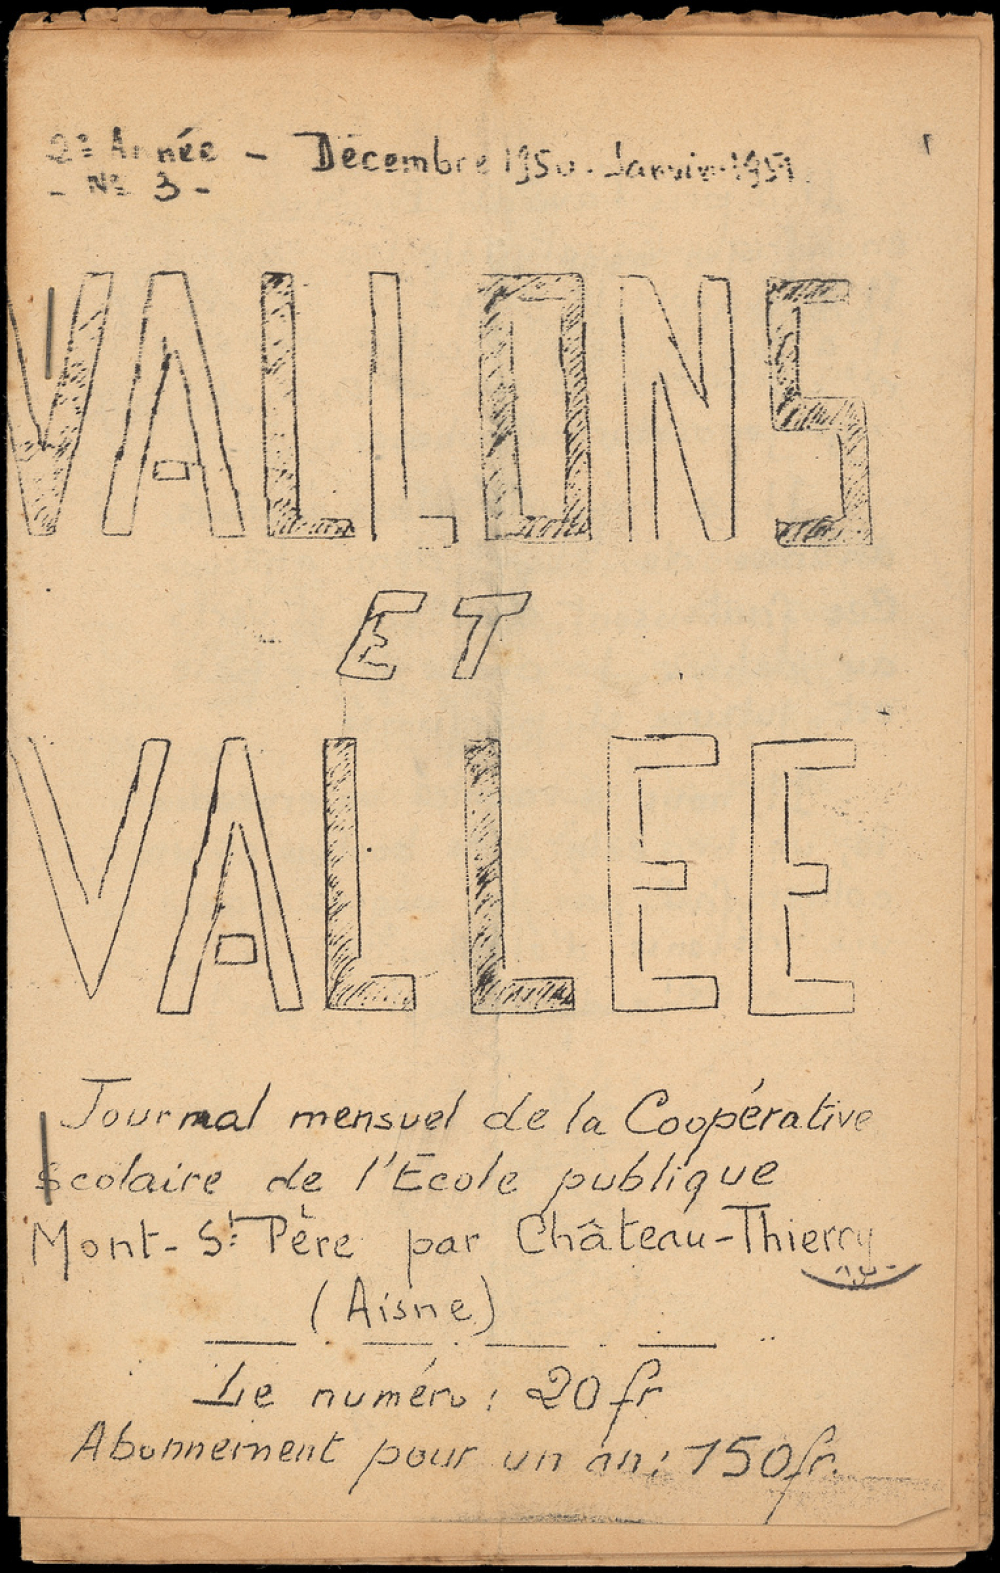 2e Année - Décembre 1950. Janvier 1951.
- No 3 -
VALLONS
ET
VALLEE
Journal mensuel de la Coopérative
scolaire de l'Ecole publique
Mont-St Père par Château-Thierry
(Aisne)
Le numéro : 20 fr
Abonnement pour un an : 150 fr.